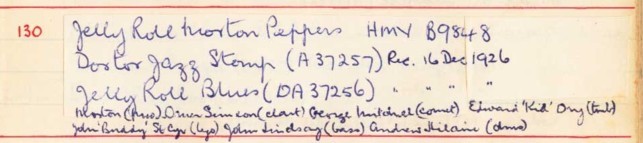 130 Jelly Roll Morton Peppers HMV B9848
Doctor Jazz Stomp (A 37257) Rec. 16 Dec 1926
Jelly Roll Blues (DA 37256) " " " "
Morton (pno). Omer Simeon (clart) George Mitchell (cornet) Edward 'Kid' Ory (tomb)
John 'Buddy' St Cyr (bjo) John Lindsay (bass) Andrew Hilaire (dms)